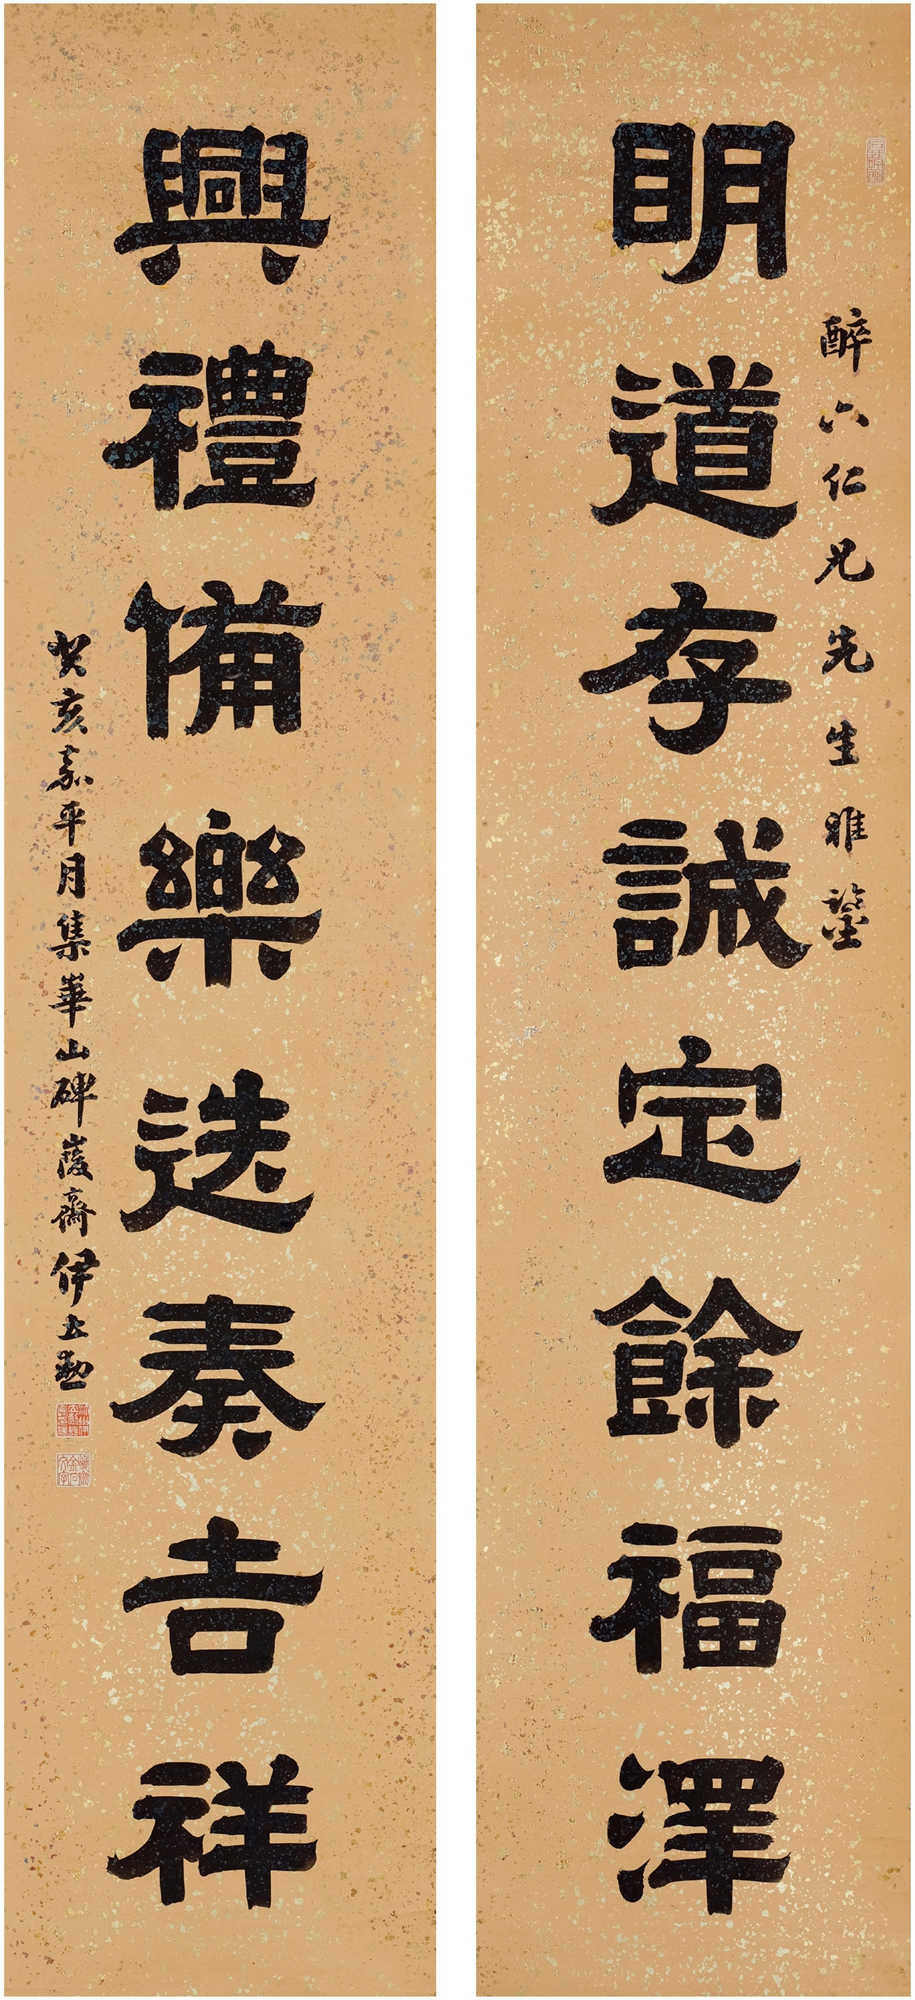 醉六仁兄先生雅鑒
明道存誠定餘福澤
興禮備樂迭奏吉祥
癸亥嘉平月集華山碑峻齋伊立勳